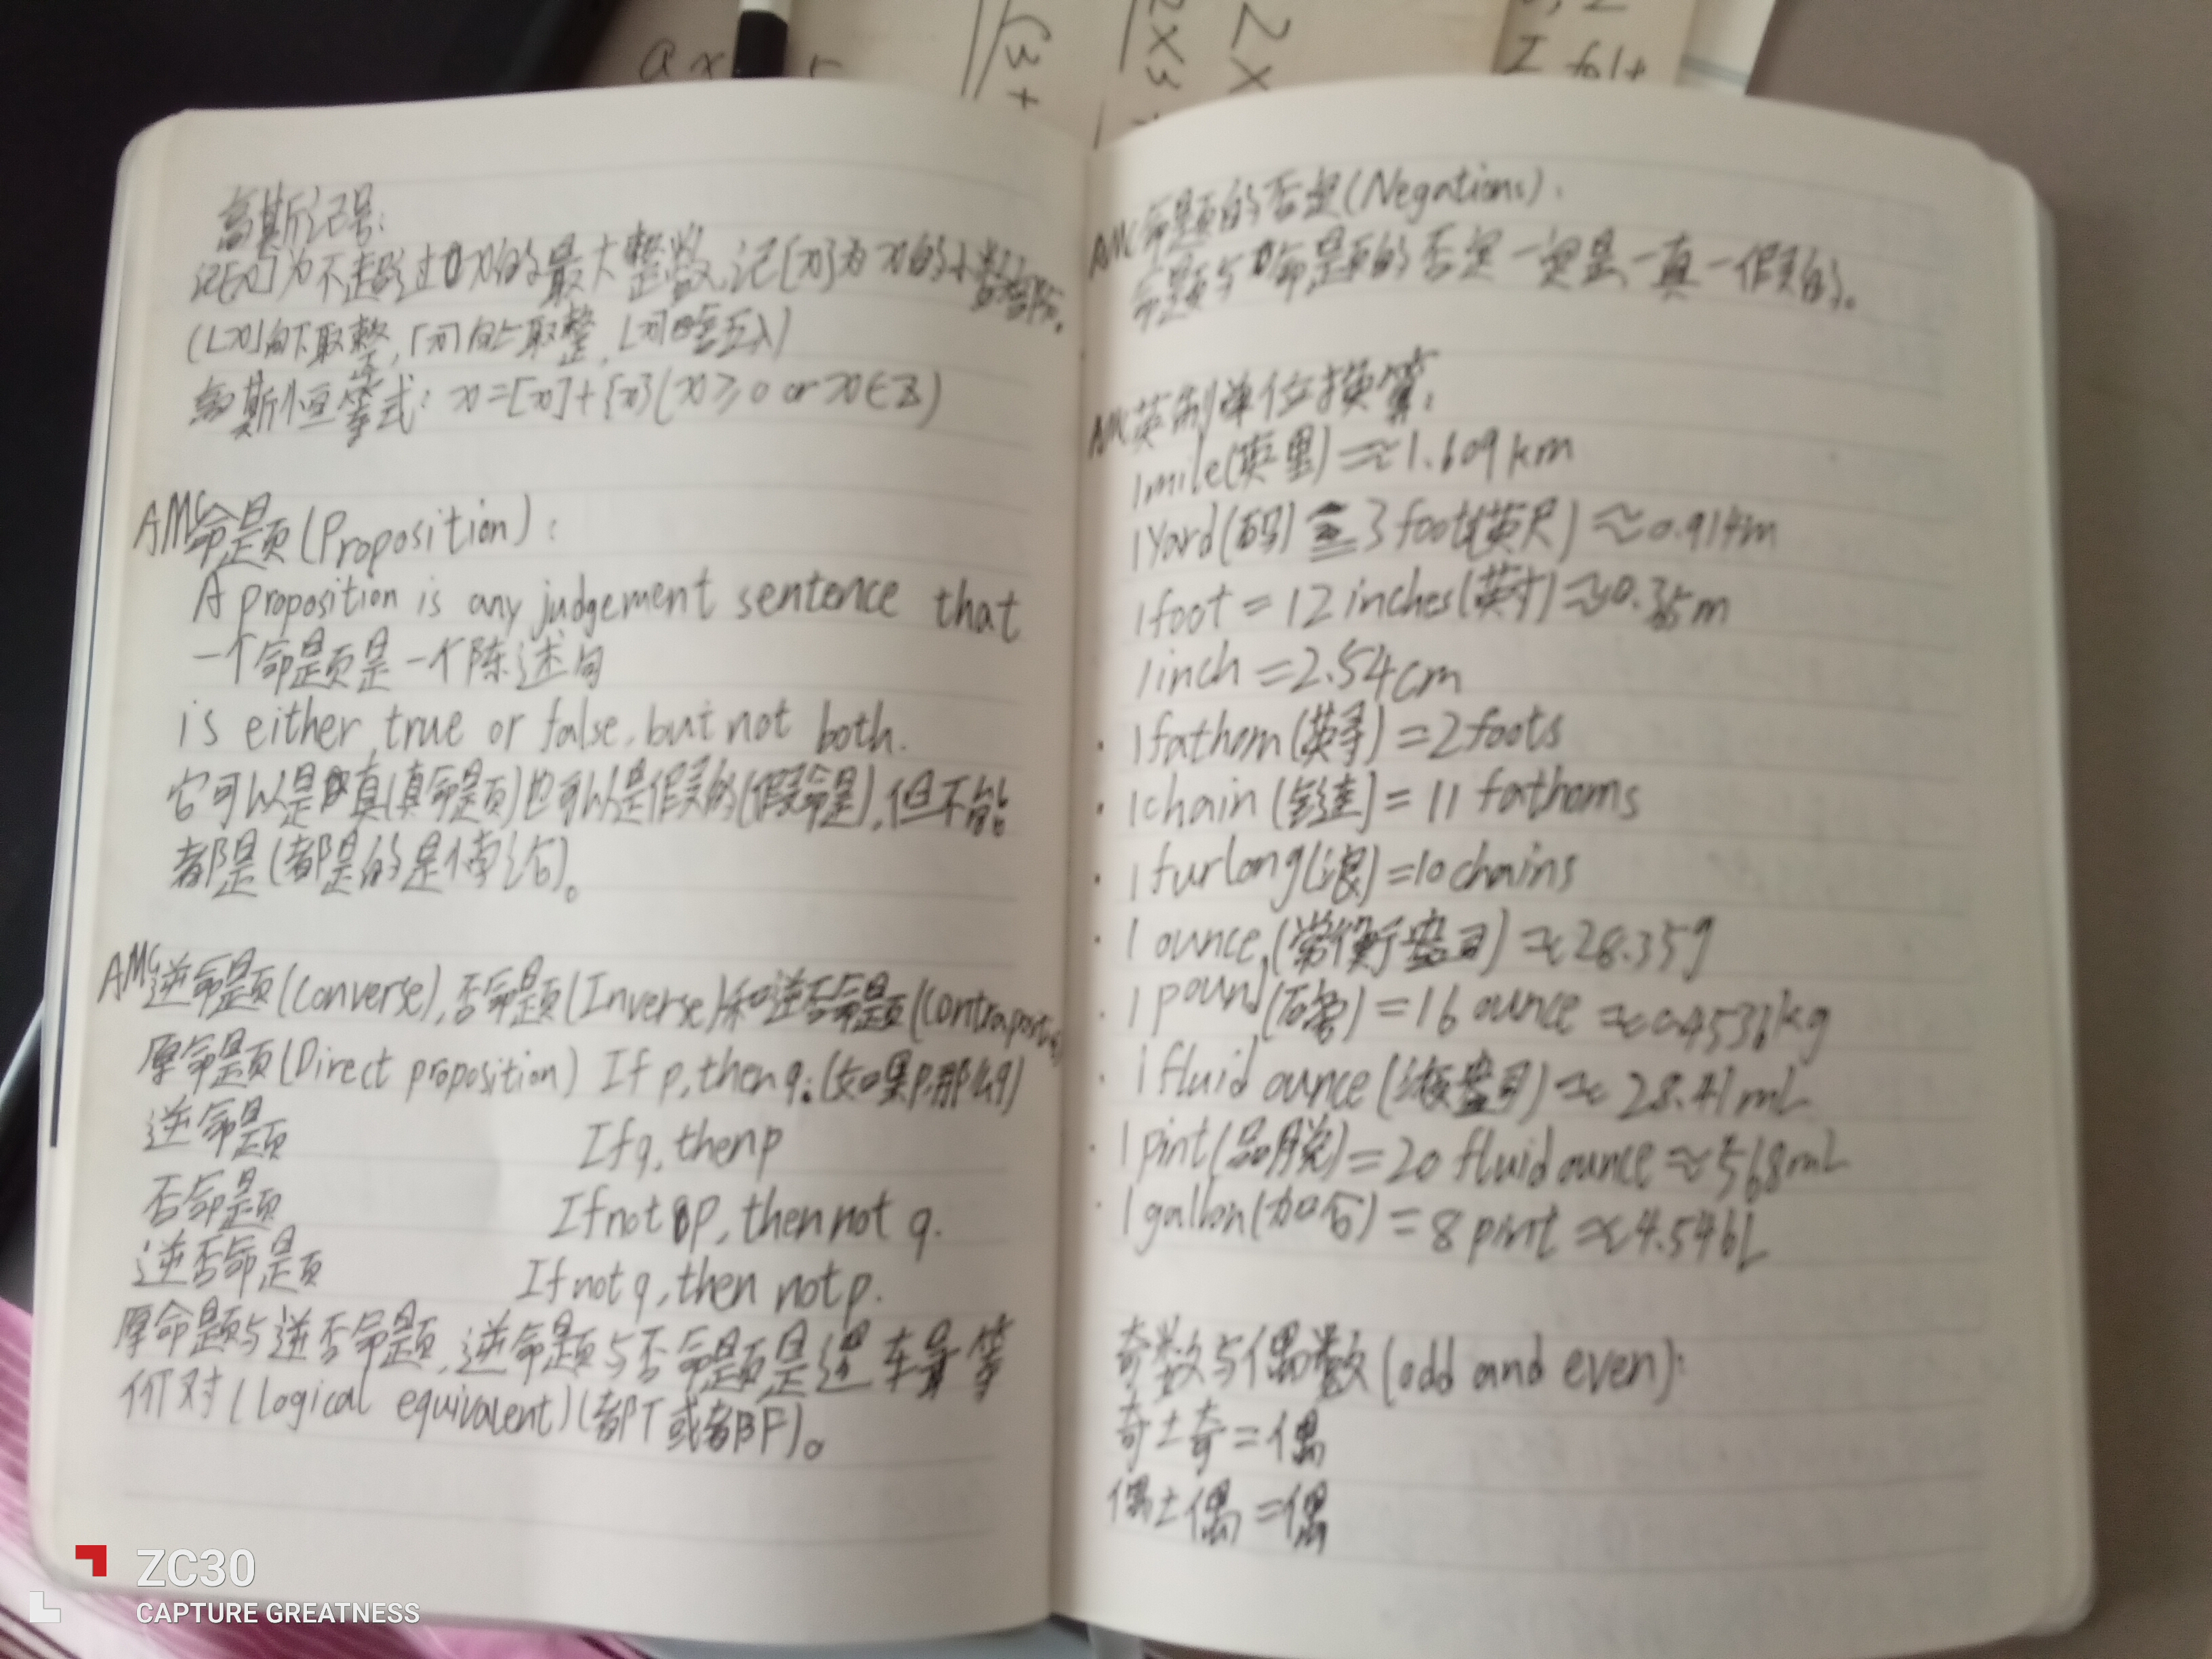 高斯记号:
记[x]为不超过x的最大整数,记{x}为x的小数部分。
(⌊x⌋向下取整,⌈x⌉向上取整,⌊x⌉四舍五入)
高斯恒等式: x=[x]+{x}(x≥0 or x∈Z)
AMC命题(Proposition):
A proposition is any judgement sentence that
一个命题是一个陈述句
is either true or false, but not both.
它可以是真(真命题)也可以是假的(假命题),但不能
都是(都是的是悖论)。
AMC逆命题(Converse),否命题(Inverse)和逆否命题(Contrapositive)
原命题(Direct proposition) If p, then q.(如果p,那么q)
逆命题 If q, then p
否命题 If not p, then not q.
逆否命题 If not q, then not p.
原命题与逆否命题,逆命题与否命题是逻辑等
价对(logical equivalent)(都T或都F)。
AMC命题的否定(Negations):
命题与命题的否定一定是一真一假的。
AMC英制单位换算:
1mile(英里)≈1.609km
1Yard(码)=3foots(英尺)≈0.914m
1foot=12inches(英寸)≈0.35m
1inch=2.54cm
·1fathom(英寻)=2foots
·1chain(链)=11 fathoms
·1furlong(浪)=10chains
·1 ounce(常衡盎司)≈28.35g
·1 pound(磅)=16 ounce≈0.4536kg
·1 fluid ounce(液盎司)≈28.41mL
·1 pint(品脱)=20 fluid ounce≈568mL
·1 gallon(加仑)=8 pint≈4.546L
奇数与偶数(odd and even):
奇±奇=偶
偶±偶=偶
ZC30
CAPTURE GREATNESS